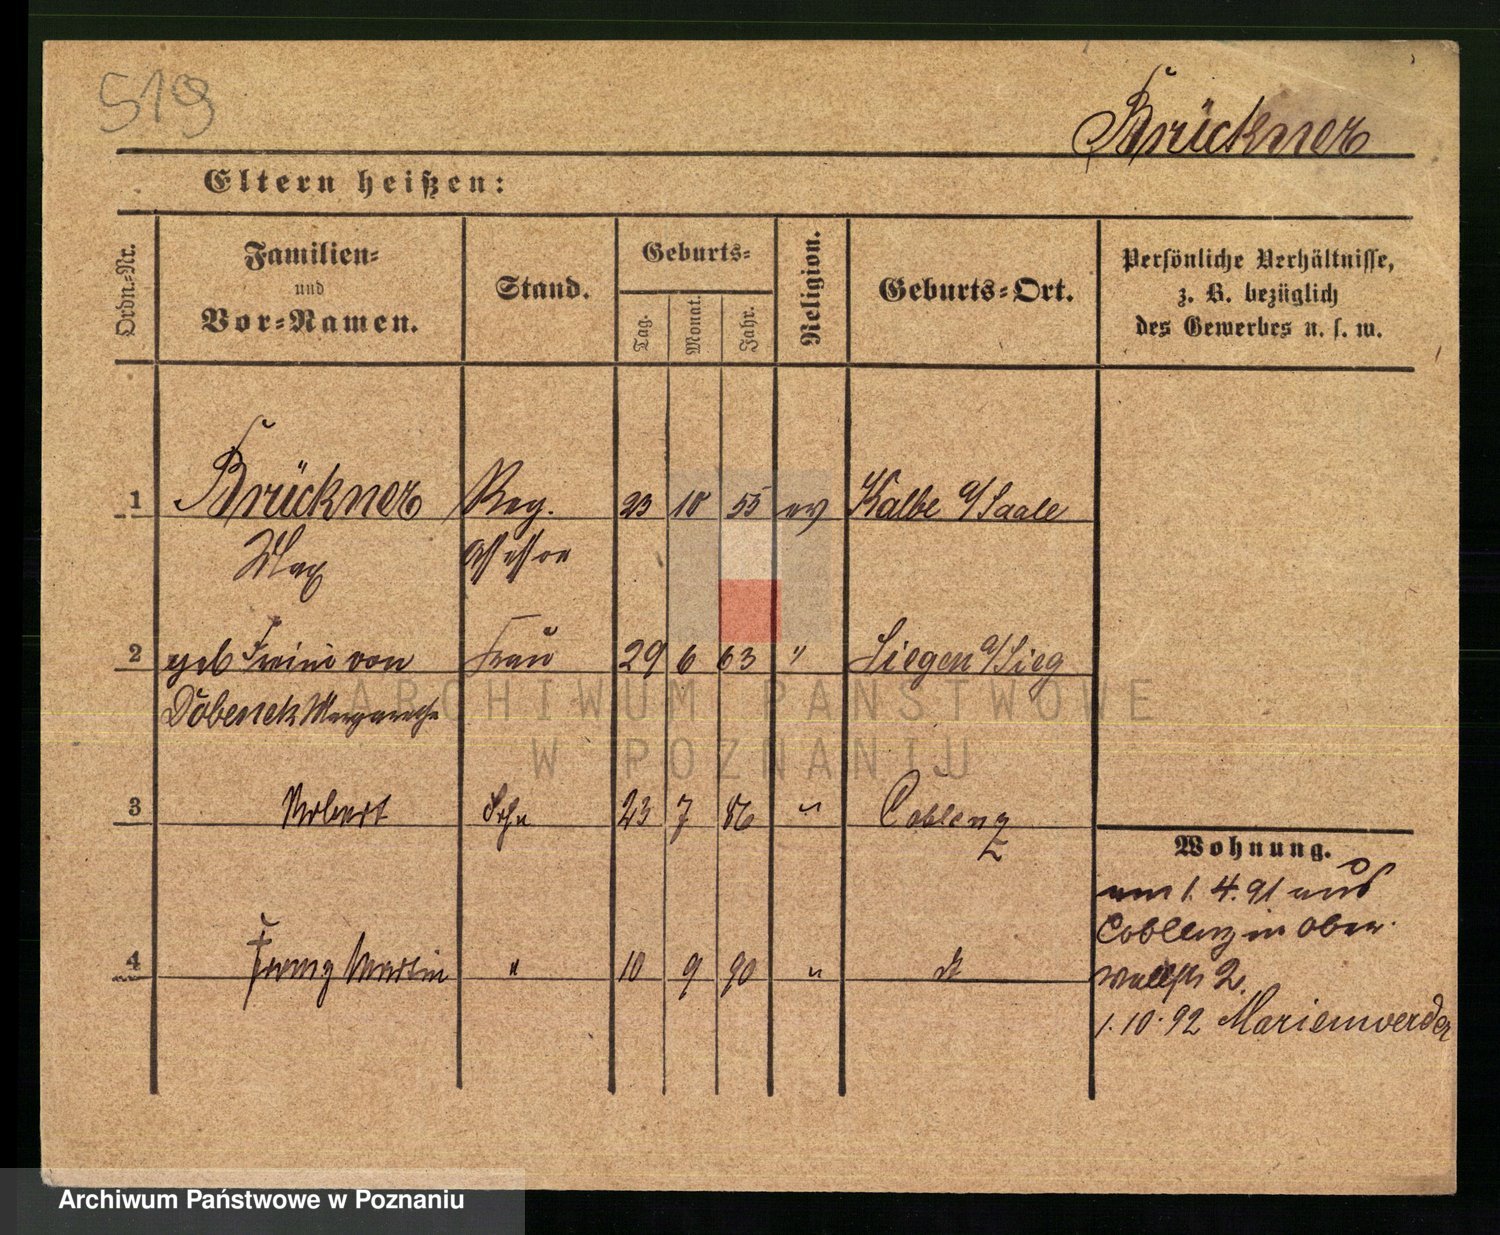 519
Brückner
Eltern heißen:
Ordn.-Nr.
Familien-
und
Vor-Namen.
Stand.
Geburts-
Tag.
Monat.
Jahr.
Religion.
Geburts-Ort.
Persönliche Verhältnisse,
z. B. bezüglich
des Gewerbes u. s. w.
1 Brückner Reg. 23 10 55 ev Kalbe a/Saale
Max Assessor
2 geb Freiin von Frau 29 6 63 " Siegen a/Sieg
Dobeneck Margarethe
3 Norbert Sohn 23 7 86 " Coblenz
4 Franz Martin " 10 9 90 " dt
Wohnung.
am 1. 4. 91 aus
Coblenz in Ober
wallstr 2.
1. 10. 92 Marienwerder
ARCHIWUM PAŃSTWOWE
W POZNANIU
Archiwum Państwowe w Poznaniu